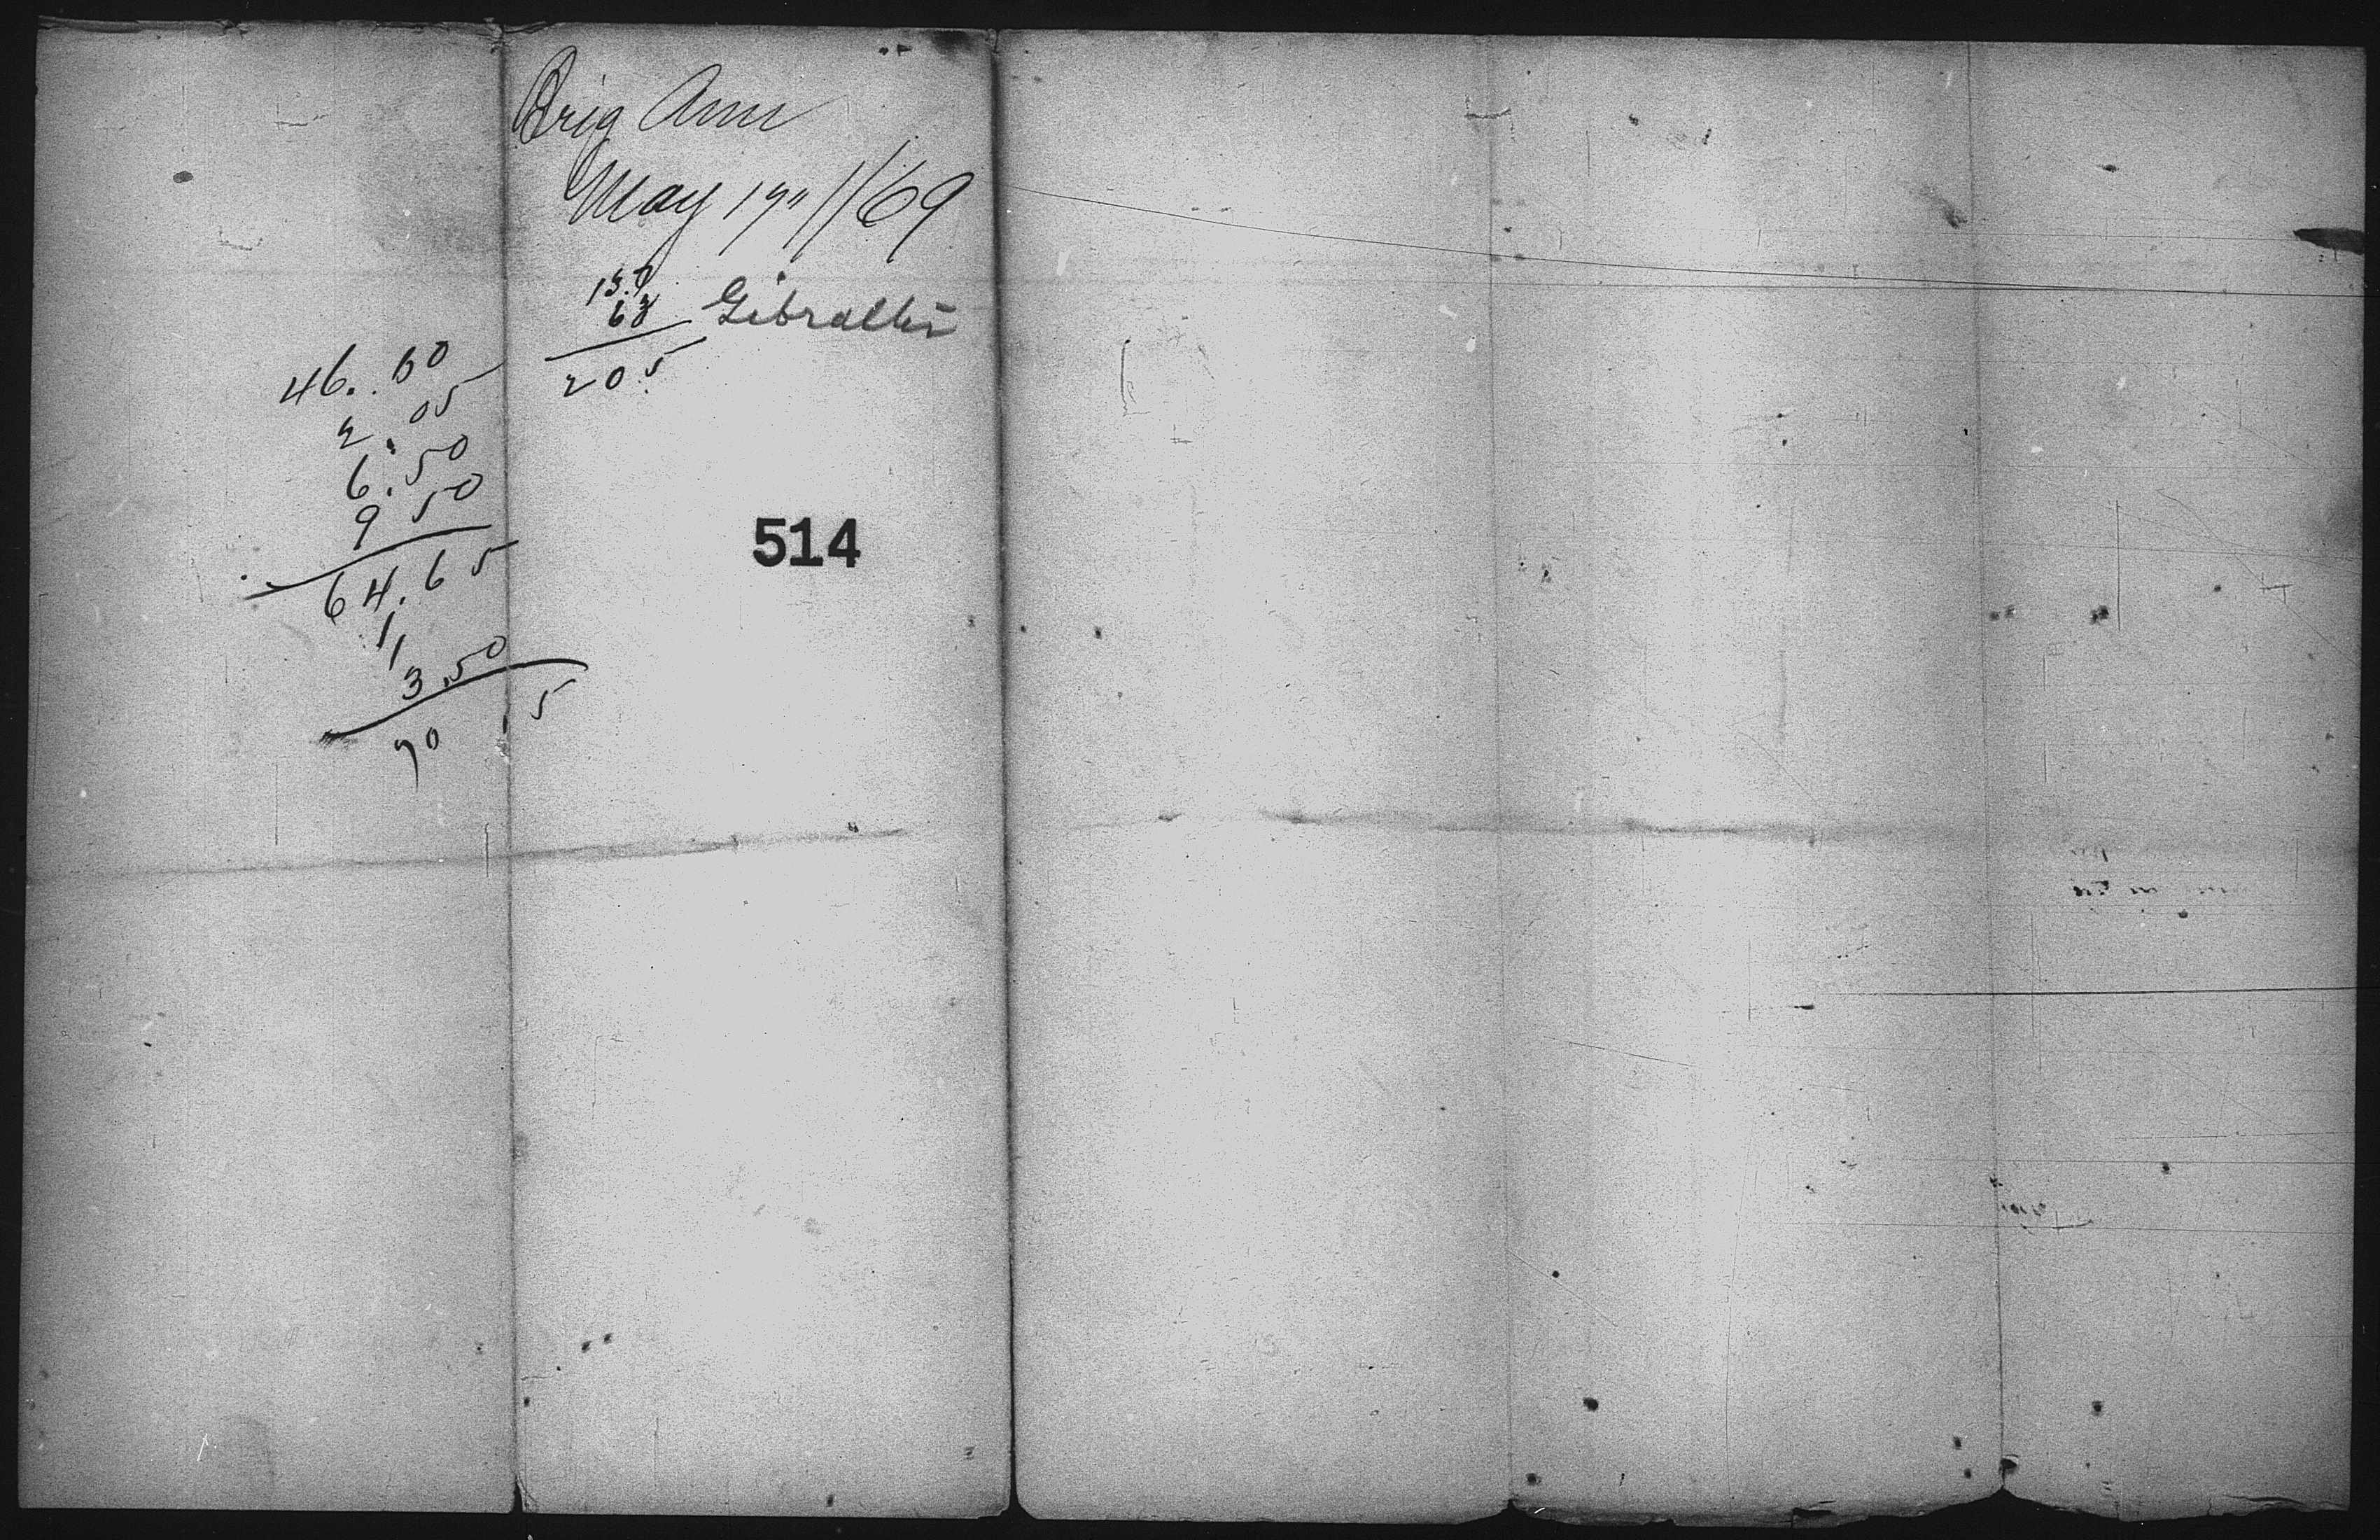 Brig Ann
May 17" //69
Gibralter
137
68
205
46.60
2.05
6.50
9 50
64.65
11
3.50
70.5
514